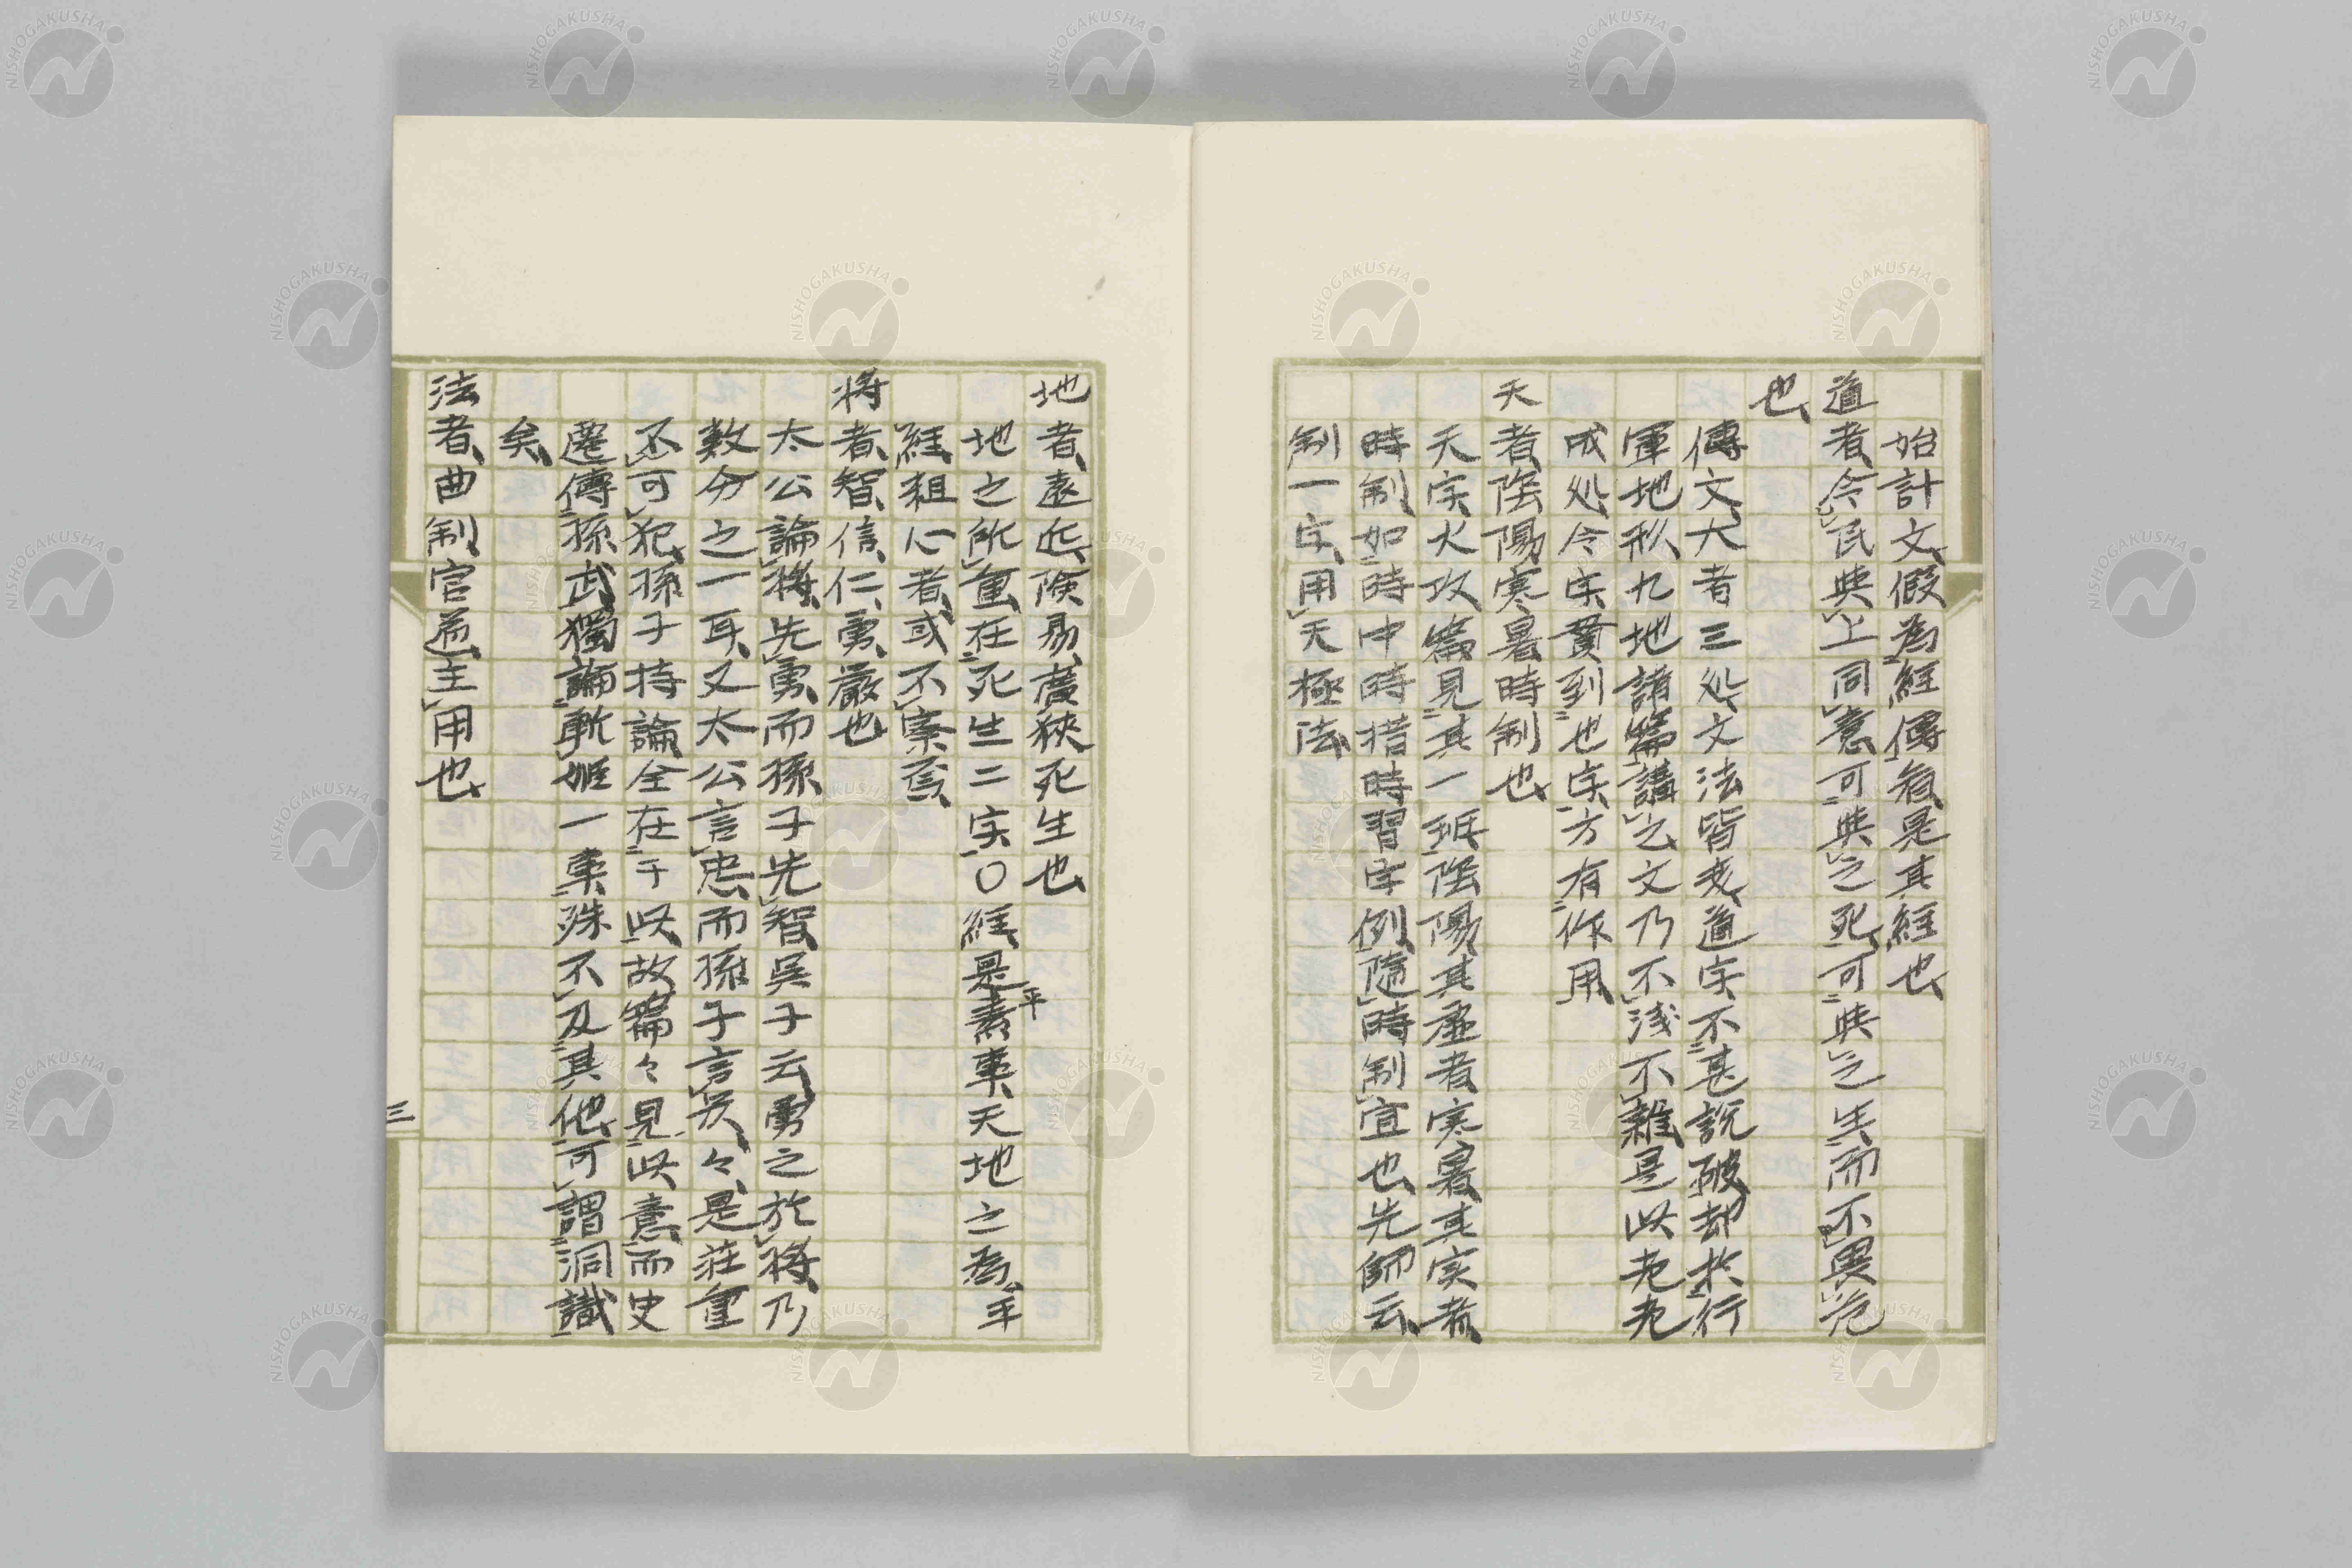 始計文、假為經傳看、是其經也、
道者、令民與上同意、可與之死、可與之生、而不畏危
也、
傳文、大者三処、文法皆幻、道字不甚説破、却於行
軍地形九地諸篇講之、文乃不浅不雜、是以老老
成処、令字貫到也字、方有作用
天者、陰陽寒暑時制也、
天字火攻篇見其一班、陰陽其虚者、寒暑其実者、
時制、如時中時措時習字例、隨時制宜也、先師云、
制一字、用天極法、
地者、遠近、険易、廣狹、死生也、
地之所重、在死生二字、〇經是平素事、天地之為、年
經粗心者、或不案焉、
将者、智、信、仁、勇、厳也、
太公論将、先勇、而孫子先智、吳子云、勇之於将、乃
数分之一耳、又太公言忠、而孫子言厳、々是荘重
不可犯、孫子持論全在于此、故篇々見此意、而史
遷傳孫武、獨論斬姫一事、殊不及其他、可謂洞識
矣、
法者、曲制官道主用也、
三
NISHOGAKUSHA